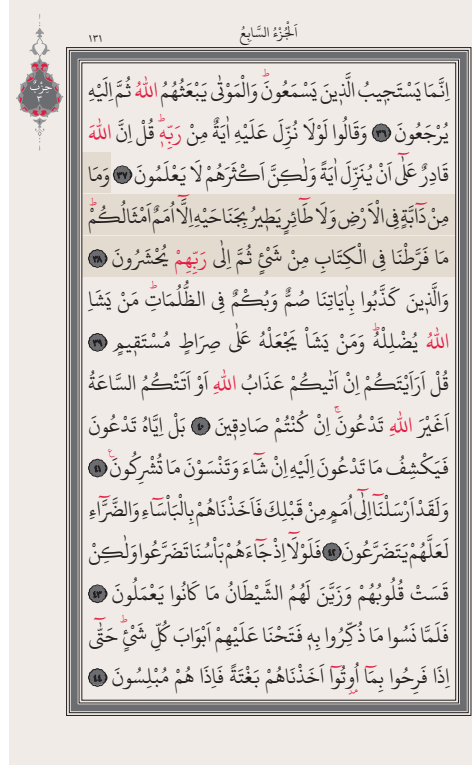 اَلْجُزْءُ السَّابِعُ
١٣١
حِزْب
٢
اِنَّمَا يَسْتَجٖيبُ الَّذٖينَ يَسْمَعُونَؕ وَالْمَوْتٰى يَبْعَثُهُمُ اللّٰهُ ثُمَّ اِلَيْهِ
يُرْجَعُونَ ﴿٣٦﴾ وَقَالُوا لَوْلَا نُزِّلَ عَلَيْهِ اٰيَةٌ مِنْ رَبِّهٖؕ قُلْ اِنَّ اللّٰهَ
قَادِرٌ عَلٰٓى اَنْ يُنَزِّلَ اٰيَةً وَلٰكِنَّ اَكْثَرَهُمْ لَا يَعْلَمُونَ ﴿٣٧﴾ وَمَا
مِنْ دَٓابَّةٍ فِى الْاَرْضِ وَلَا طَٓائِرٍ يَطٖيرُ بِجَنَاحَيْهِ اِلَّٓا اُمَمٌ اَمْثَالُكُمْؕ
مَا فَرَّطْنَا فِى الْكِتَابِ مِنْ شَىْءٍ ثُمَّ اِلٰى رَبِّهِمْ يُحْشَرُونَ ﴿٣٨﴾
وَالَّذٖينَ كَذَّبُوا بِاٰيَاتِنَا صُمٌّ وَبُكْمٌ فِى الظُّلُمَاتِؕ مَنْ يَشَاِ
اللّٰهُ يُضْلِلْهُؕ وَمَنْ يَشَاْ يَجْعَلْهُ عَلٰى صِرَاطٍ مُسْتَقٖيمٍ ﴿٣٩﴾
قُلْ اَرَاَيْتَكُمْ اِنْ اَتٰيكُمْ عَذَابُ اللّٰهِ اَوْ اَتَتْكُمُ السَّاعَةُ
اَغَيْرَ اللّٰهِ تَدْعُونَۚ اِنْ كُنْتُمْ صَادِقٖينَ ﴿٤٠﴾ بَلْ اِيَّاهُ تَدْعُونَ
فَيَكْشِفُ مَا تَدْعُونَ اِلَيْهِ اِنْ شَٓاءَ وَتَنْسَوْنَ مَا تُشْرِكُونَۚ ﴿٤١﴾
وَلَقَدْ اَرْسَلْنَٓا اِلٰٓى اُمَمٍ مِنْ قَبْلِكَ فَاَخَذْنَاهُمْ بِالْبَاْسَٓاءِ وَالضَّرَّٓاءِ
لَعَلَّهُمْ يَتَضَرَّعُونَ ﴿٤٢﴾ فَلَوْلَٓا اِذْ جَٓاءَهُمْ بَاْسُنَا تَضَرَّعُوا وَلٰكِنْ
قَسَتْ قُلُوبُهُمْ وَزَيَّنَ لَهُمُ الشَّيْطَانُ مَا كَانُوا يَعْمَلُونَ ﴿٤٣﴾
فَلَمَّا نَسُوا مَا ذُكِّرُوا بِهٖ فَتَحْنَا عَلَيْهِمْ اَبْوَابَ كُلِّ شَىْءٍؕ حَتّٰٓى
اِذَا فَرِحُوا بِمَٓا اُو۫تُٓوا اَخَذْنَاهُمْ بَغْتَةً فَاِذَا هُمْ مُبْلِسُونَ ﴿٤٤﴾